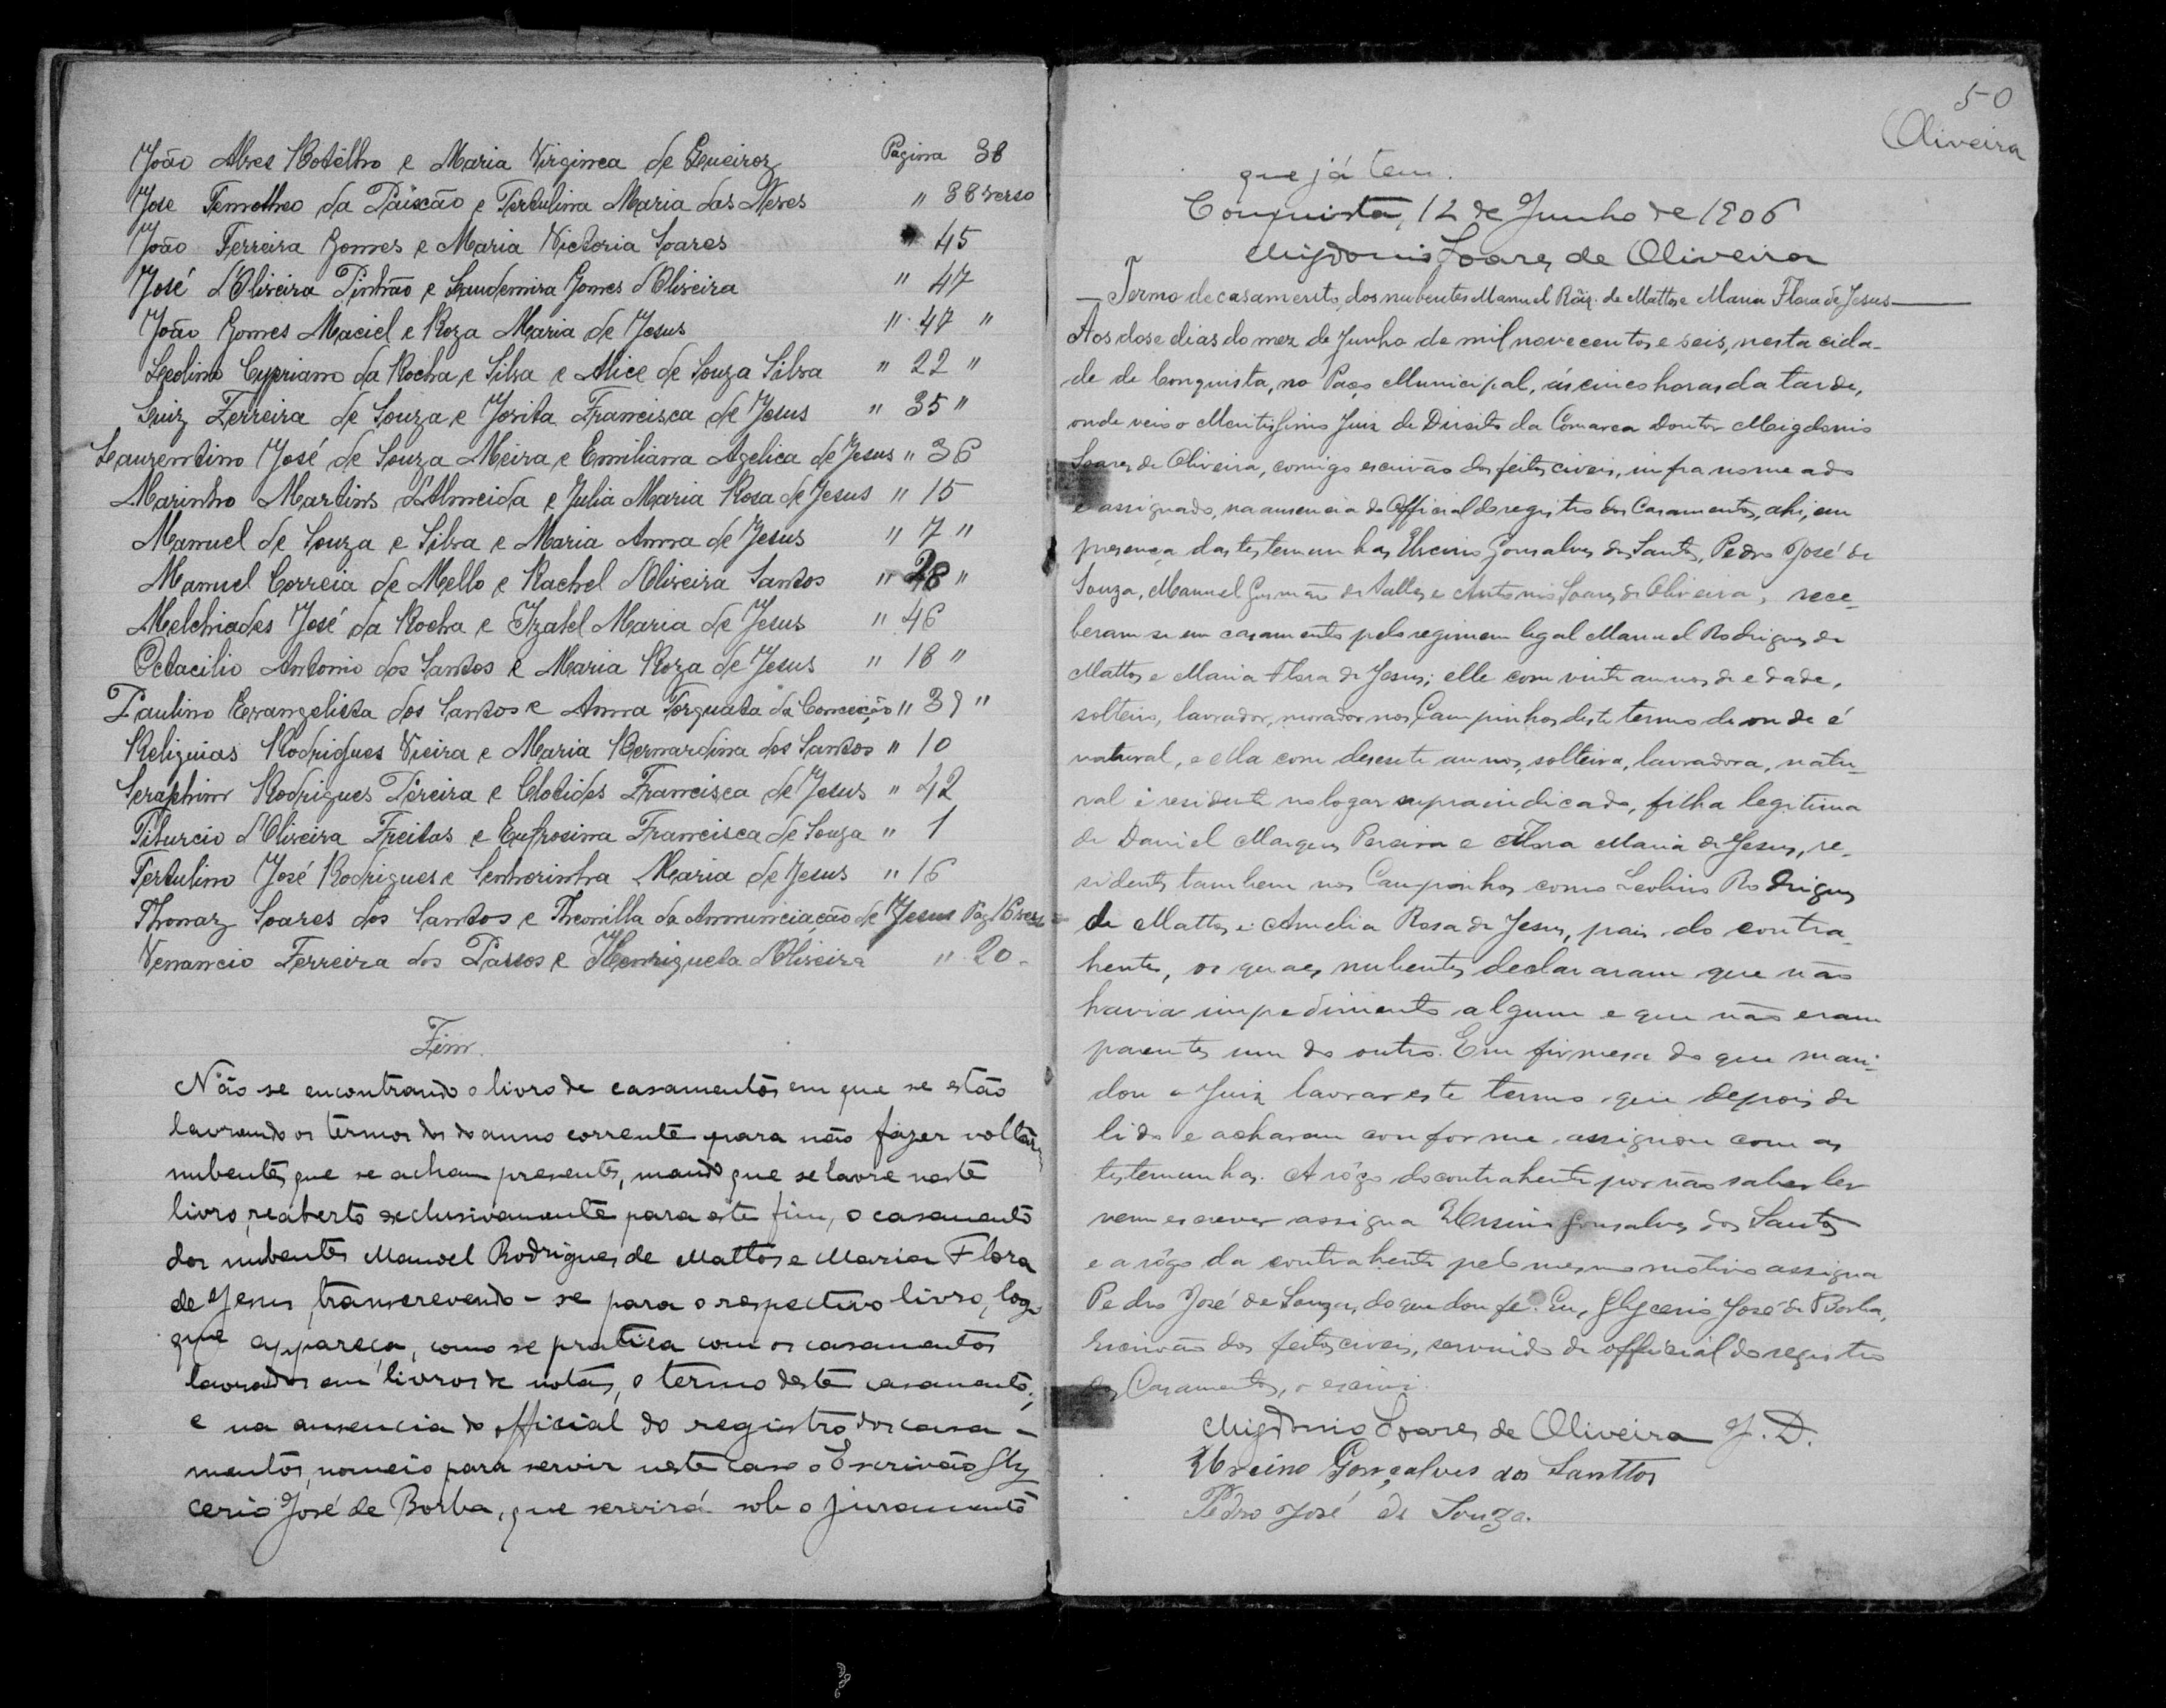 João Alves Botêlho e Maria Virginea de Queiroz Pagina 38
Jose Temotheo da Páixão e Tertulina Maria das Neves " 38 verso
João Ferreira Gomes e Maria Victoria Soares " 45
José d'Oliveira Pinhão e Laudemira Gomes d'Oliveira " 47
João Gomes Maciel e Roza Maria de Jesus " 47 "
Leolino Cypriano da Rocha e Silva e Alice de Souza Silva " 22 "
Luiz Ferreira de Souza e Jovita Francisca de Jesus " 35 "
Laurentino José de Souza Meira e Emiliana Agelica de Jesus " 36
Marinho Martins d'Almeida e Julia Maria Rosa de Jesus " 15
Manuel de Souza e Silva e Maria Anna de Jesus " 7 "
Manuel Correia de Mello e Rachel d'Oliveira Santos " 28 "
Melchiades José da Rocha e Izabel Maria de Jesus " 46
Octacilio Antonio dos Santos e Maria Roza de Jesus " 18 "
Paulino Evangelista dos Santos e Anna Torquata da Conceição " 39 "
Reliquias Rodrigues Vieira e Maria Bernardina dos Santos " 10
Seraphim Rodrigues Pereira e Clotides Francisca de Jesus " 42
Tiburcio d'Oliveira Freitas e Eufrosina Francisca de Souza " 1
Tertulino José Rodrigues e Senhorinha Maria de Jesus " 16
Thomaz Soares dos Santos e Theonilla da Annunciação de Jesus Pag 16 verso
Venancio Ferreira dos Passos e Henriqueta d'Oliveira " 20
Fim.
Não se encontrando o livro de casamentos em que se estão
lavrando os termos dos do anno corrente para não fazer voltar
nubentes que se acham presentes, mando que se lavre neste
livro, reaberto exclusivamente para este fim, o casamento
dos nubentes Manoel Rodrigues de Mattos e Maria Flora
de Jesus, transcrevendo-se para o respectivo livro, logo
que appareça, como se pratica com os casamentos
lavrados em livros de notas, o termo deste casamento;
e na ausencia do official do registro dos casa-
mentos, nomeio para servir neste caso o Escrivão Gly
cerio José de Borba, que servirá sob o juramento
50
Oliveira
que já tem.
Conquista, 12 de Junho de 1906
Migdonio Soares de Oliveira
Termo de casamento dos nubentes Manuel Roiz. de Mattos e Maria Flora de Jesus
Aos dose dias do mez de Junho de mil novecentos e seis, nesta cida-
de de Conquista, no Paço Municipal, ás cinco horas da tarde,
onde veio o Meritissimo Juiz de Direito da Comarca Doutor Migdonio
Soares de Oliveira, comigo escrivão dos feitos civeis, infra nomeado
e assignado, na ausencia do Official do registro dos Casamentos, ahi, em
presença das testemunhas Ursino Gonsalves dos Santos, Pedro José de
Souza, Manuel Gusmão de Salles e Antonio Soares de Oliveira, rece-
beram se em casamento pelo regimem legal Manuel Rodrigues de
Mattos e Maria Flora de Jesus; elle com vinte annos de edade,
solteiro, lavrador, morador nos Campinhos deste termo de onde é
natural, e ella com desesete annos, solteira, lavradora, natu-
ral e residente no logar supraindicado, filha legitima
de Daniel Marques Pereira e Flora Maria de Jesus, re-
sidentes tambem nos Campinhos como Leolino Rodrigues
de Mattos e Amelia Rosa de Jesus, pais do contra-
hente, os quaes nubentes declararam que não
havia impedimento algum e que não eram
parentes um do outro. Em firmesa do que man-
dou o Juiz lavrar este termo que depois de
lido e acharam conforme assignou com as
testemunhas. A rôgo do contrahente por não saber ler
nem escrever assigna Ursino Gonsalves dos Santos
e a rôgo da contrahente pelo mesmo motivo assigna
Pedro José de Souza, do que dou fe. Eu, Glycerio José de Borba,
Escrivão dos feitos civeis, servindo de official do registro
dos Casamentos, o escrevi.
Migdonio Soares de Oliveira J. D.
Urcino Gonçalves dos Santtos
Pedro José de Souza.